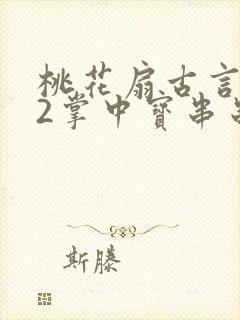 桃花扇古言
2掌中寳串
斯滕